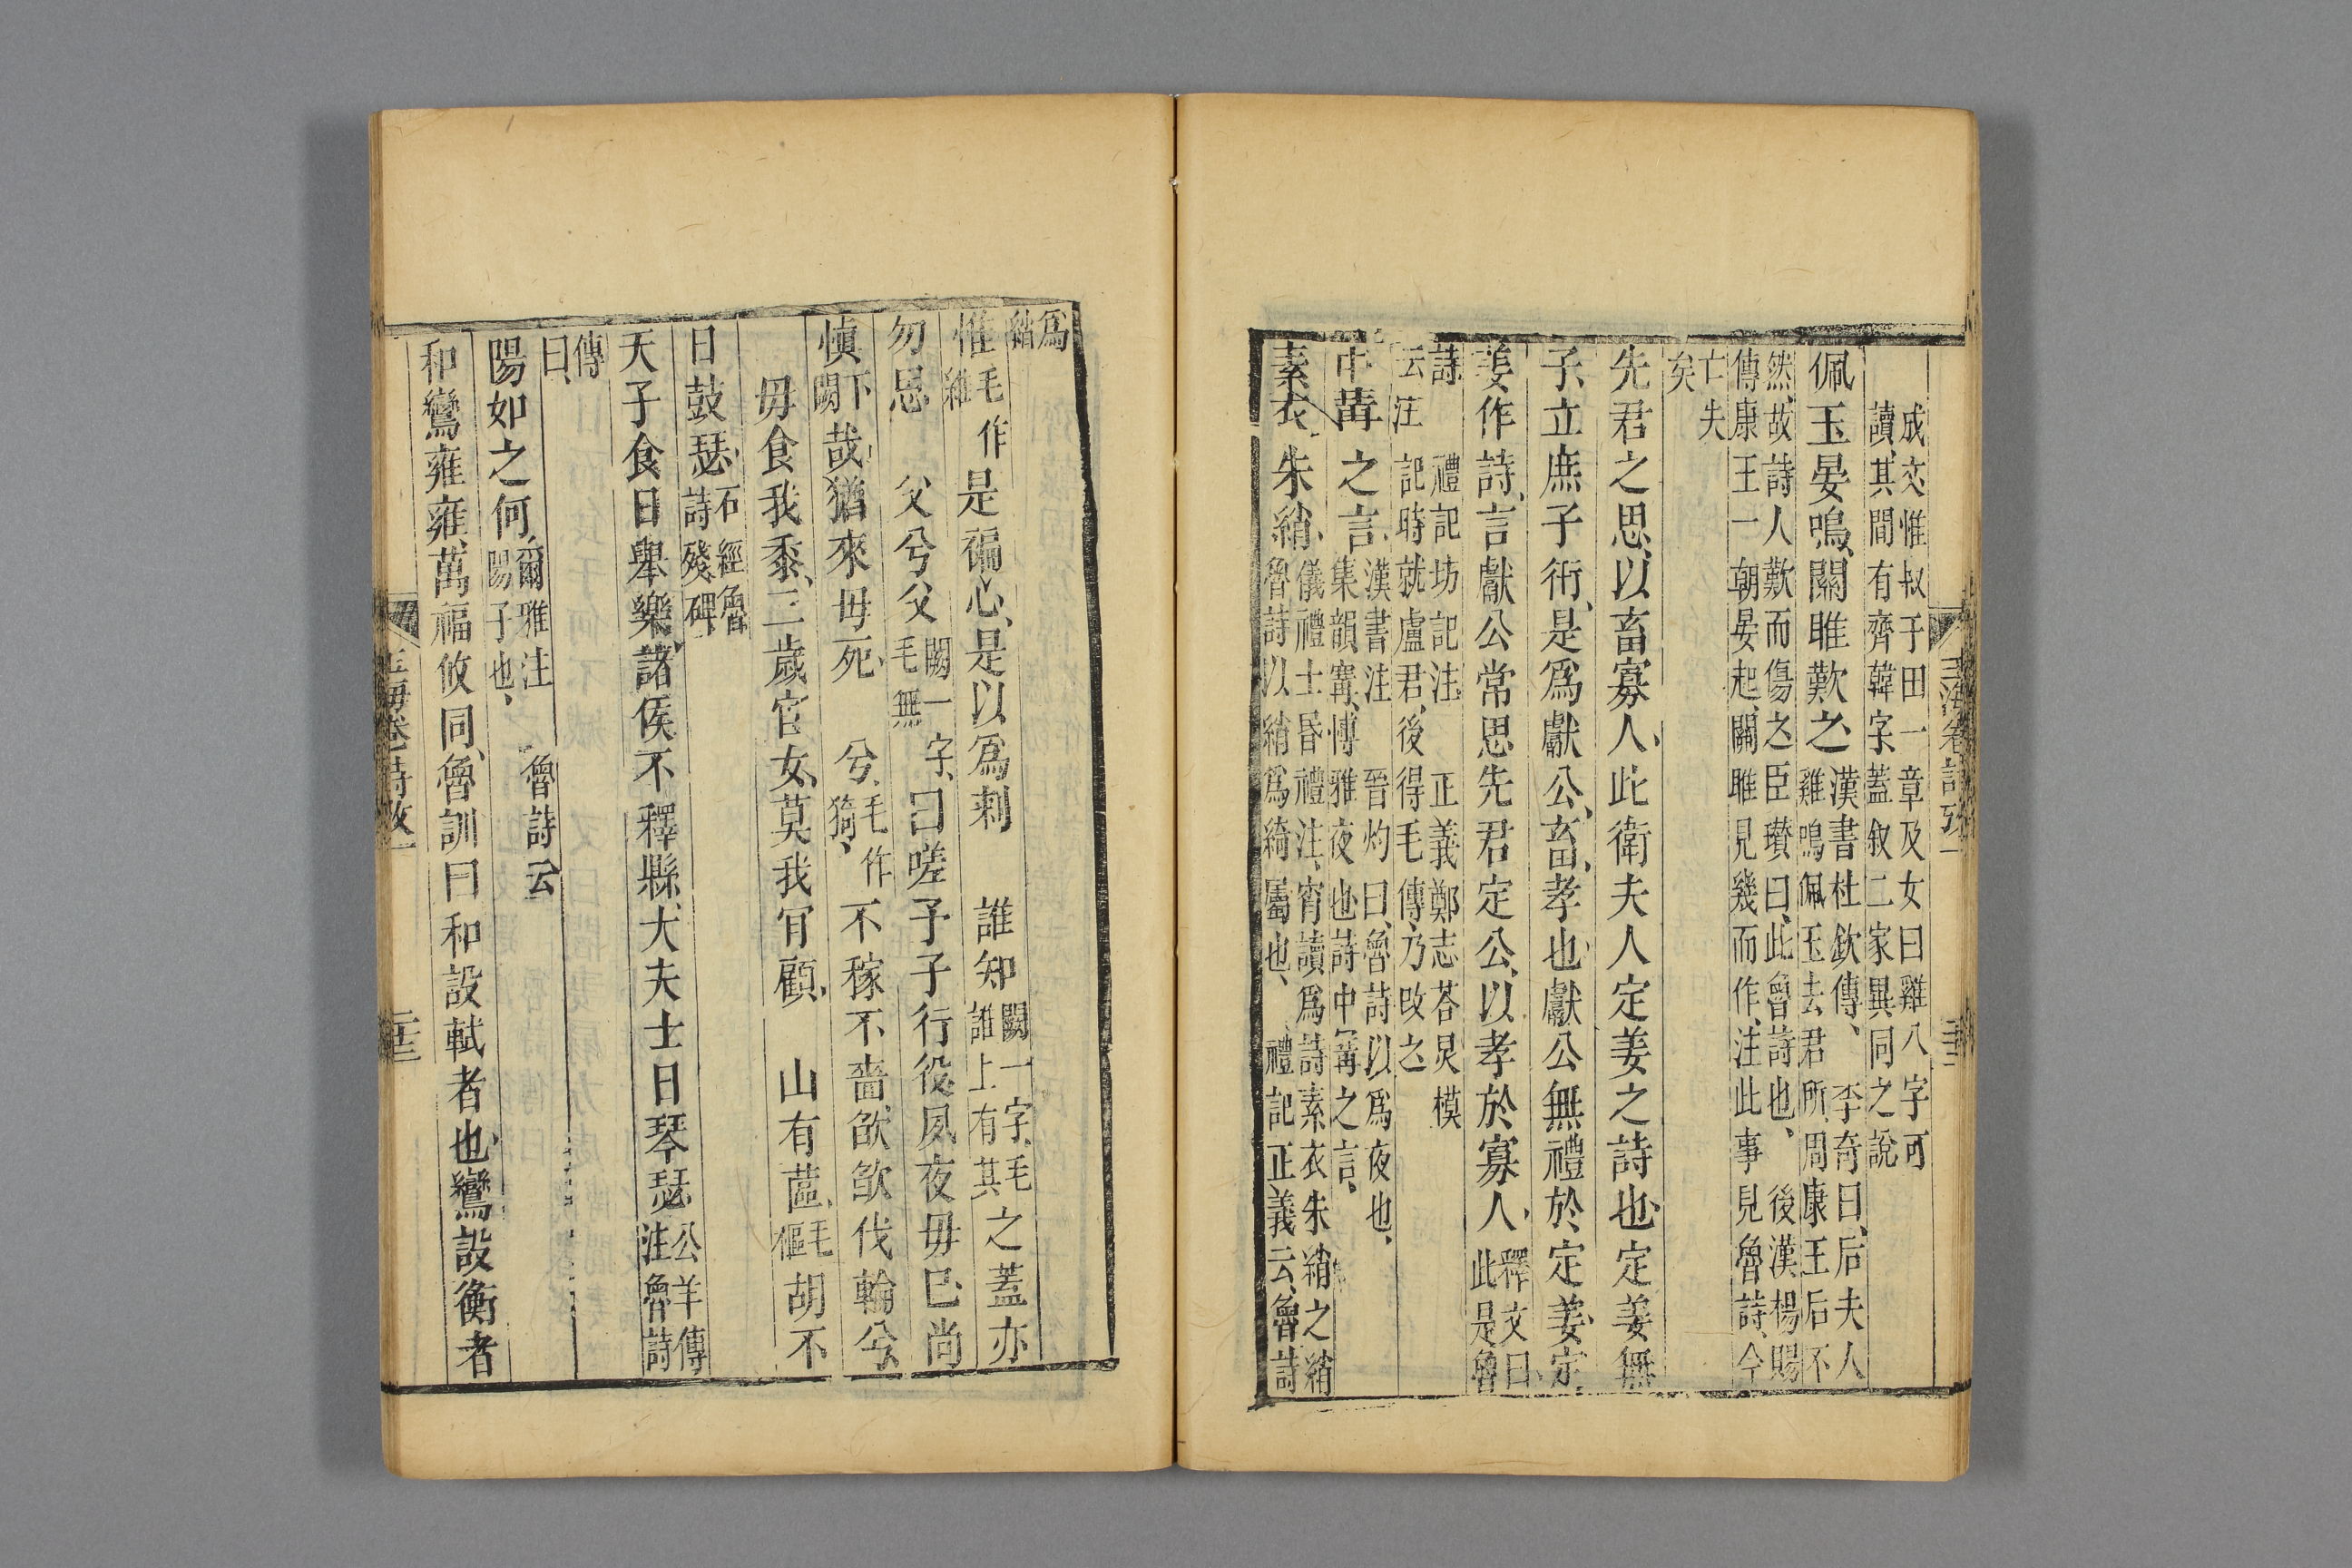 成文惟叔于田一章及女曰雞八字可
讀其間有齊韓字蓋叙二家異同之說
佩玉晏鳴關雎歎之漢書杜欽傳李奇曰后夫人
雞鳴佩玉去君所周康王后不
然故詩人歎而傷之臣瓚曰此魯詩也後漢楊賜
傳康王一朝晏起關雎見幾而作注此事見魯詩今
亡失
矣
先君之思以畜寡人此衛夫人定姜之詩也定姜無
子立庶子衎是爲獻公畜孝也獻公無禮於定姜定
姜作詩言獻公常思先君定公以孝於寡人釋文曰
此是魯
詩禮記坊記注正義鄭志荅炅模
云注記時就盧君後得毛傳乃改之
中冓之言漢書注晉灼曰魯詩以爲夜也
集韻㝅博雅夜也詩中㝅之言
素衣朱綃儀禮士昏禮注宵讀爲詩素衣朱綃之綃
魯詩以綃爲綺屬也禮記正義云魯詩
爲
綃
惟毛作
維是褊心是以爲刺 誰知闕一字毛
誰上有其之蓋亦
勿思 父兮父闕一字
毛無曰嗟予子行役夙夜毋已尚
愼下
闕哉猶來毋死 兮毛作
猗不稼不嗇欿欿伐輪兮
毋食我黍三歲宦女莫我肎顧 山有蓲毛
樞胡不
日鼓瑟石經魯
詩殘碑
天子食日舉樂諸侯不釋縣大夫士日琴瑟公羊傳
注魯詩
傳
曰
陽如之何爾雅注魯詩云
陽子也
和鸞雍雍萬福攸同魯訓曰和設軾者也鸞設衡者
玉海卷詩攷一 二十三